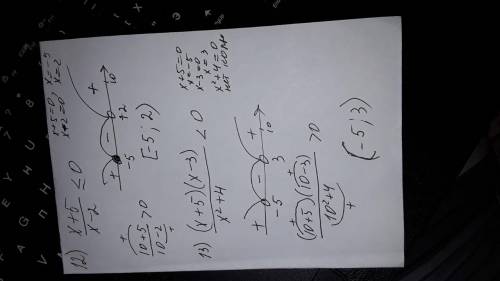 12) (x+5)/(x-2) ≤ 0
x+5=0, x=-5
x+2=0 x=2
+ - +
-5 +2 10
(10+5)/(10-2) >0
+
+
[-5; 2)
13) ((x+5)(x-3))/(x²+4) < 0
x+5=0
x=-5
x-3=0
x=3
x²+4=0
нет
+ - +
-5 3 10
+ +
((10+5)(10-3))/(10²+4) >0
+
(-5; 3)